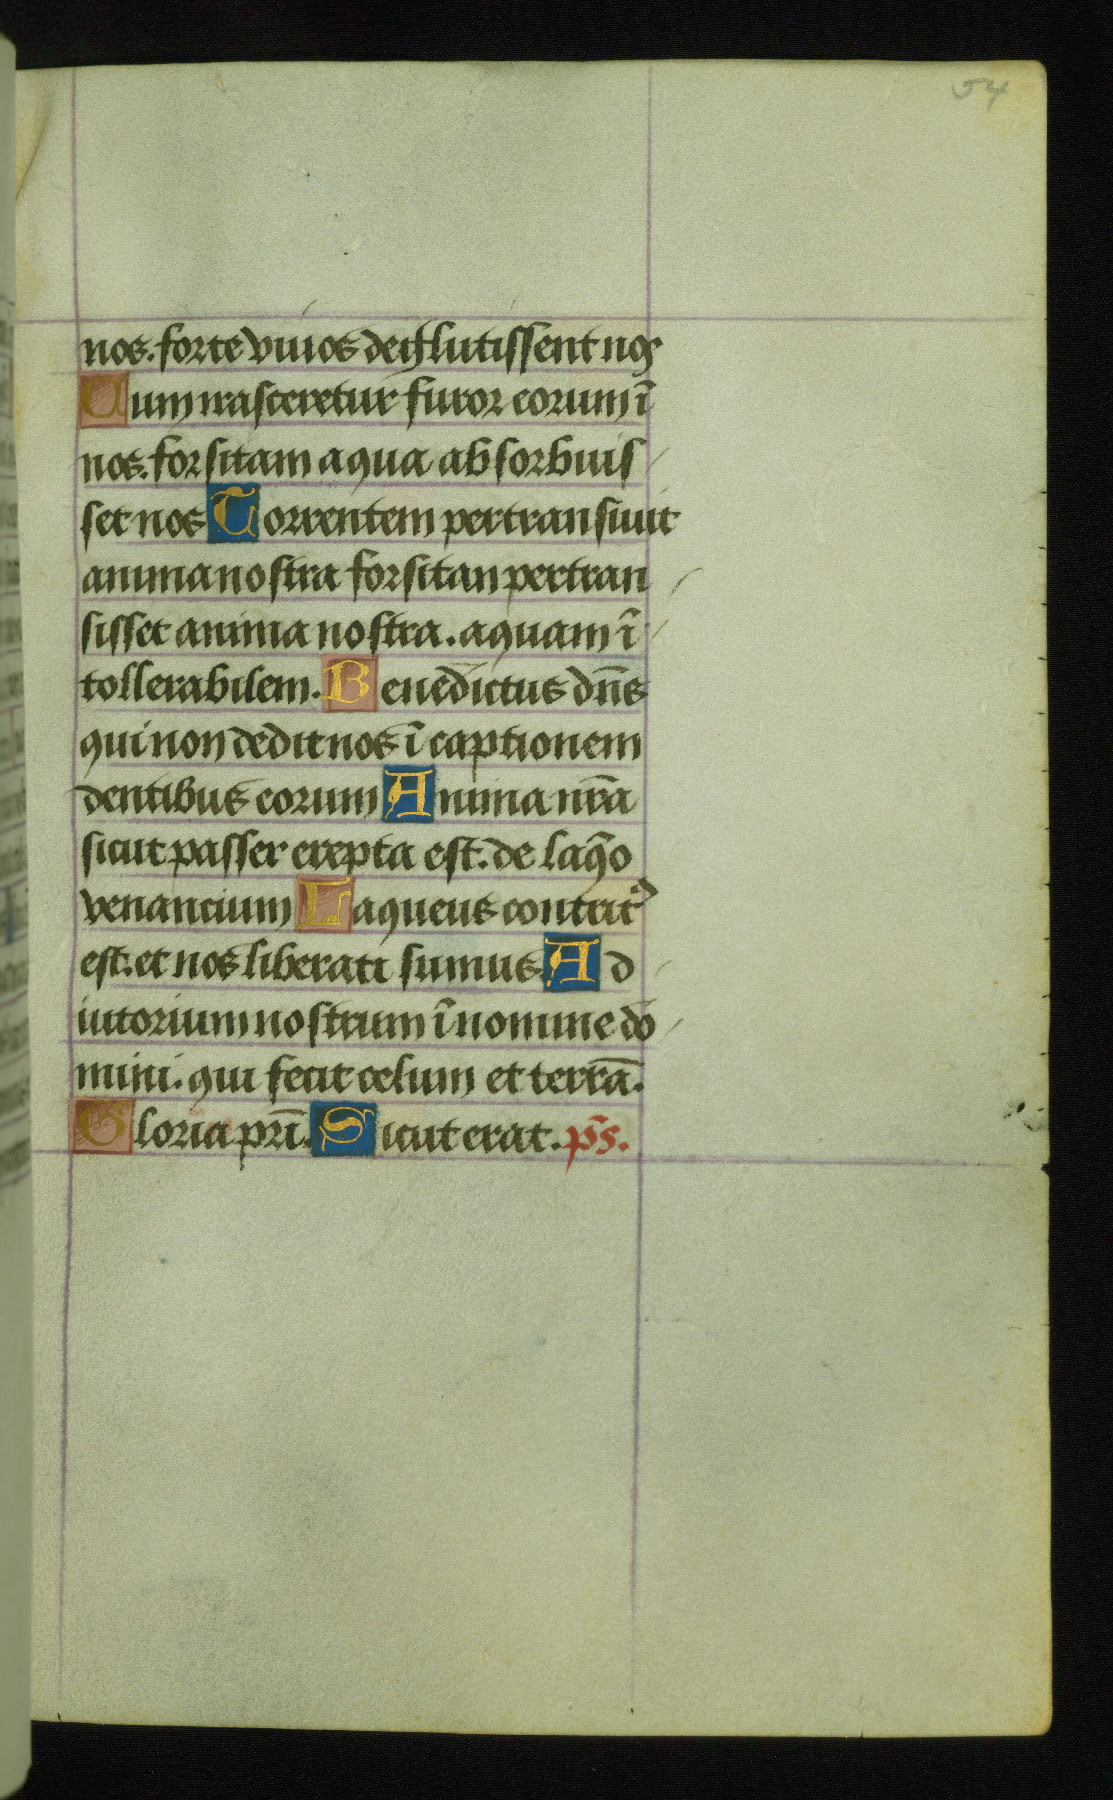 54
nos. forte viuos deglutissent nos
Cum irasceretur furor eorum ī
nos. forsitam aqua absorbuis
set nos Torrentem pertransiuit
anima nostra forsitan pertran
sisset anima nostra. aquam ī
tollerabilem. Benedictus dn̄s
qui non dedit nos ī captionem
dentibus eorum Anima nr̄a
sicut passer erepta est. de laq̄o
venancium Laqueus contritꝰ
est. et nos liberati sumus. Ad
iutorium nostrum ī nomine do
mini. qui fecit celum et terrā.
Gloria pr̄i. Sicut erat. p̄s.